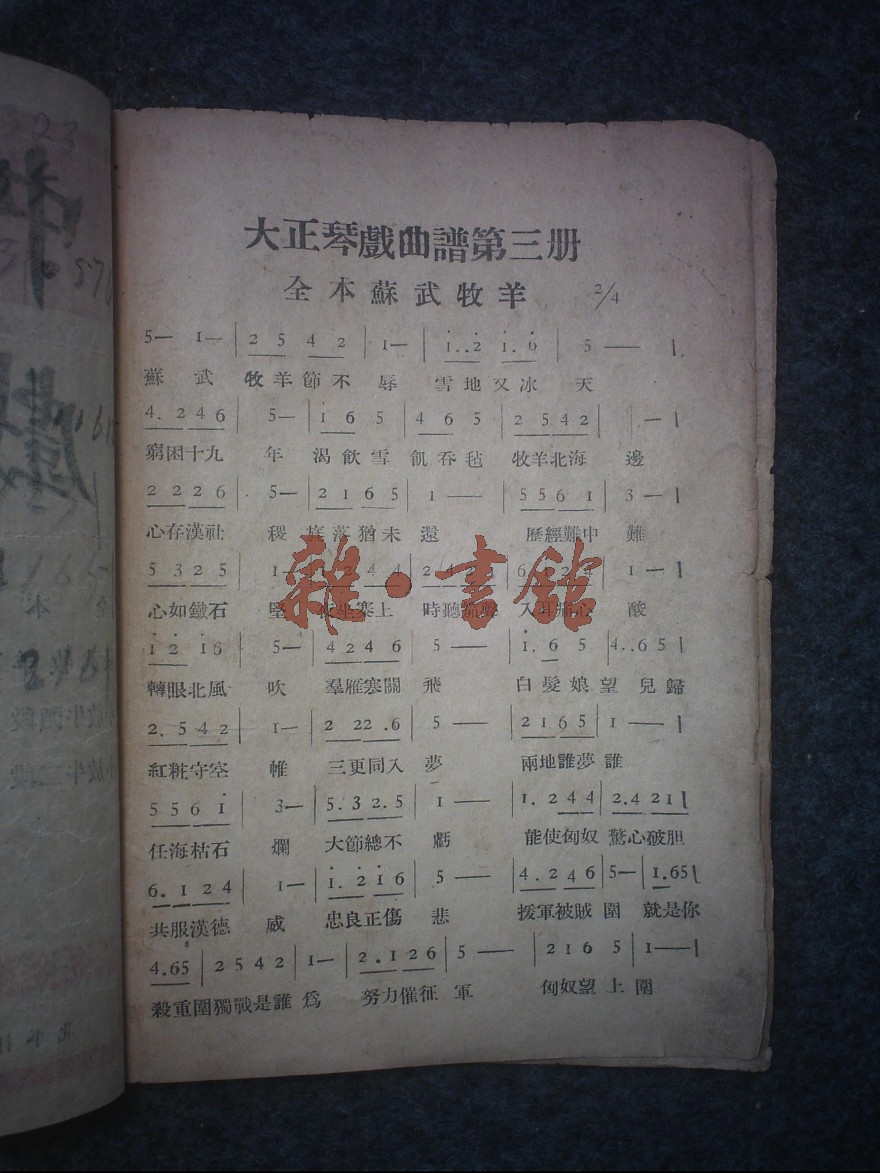 大正琴戲曲譜第三册
全本蘇武牧羊 2/4
5— 1— | 2 5 4 2 | 1— | 1..2 1.6 | 5 —— |
蘇武牧羊節不辱 雪地又冰天
4. 2 4 6 | 5— | 1 6 5 | 4 6 5 | 2 5 4 2 | —|
窮困十九年 渴飲雪 飢吞毡 牧羊北海邊
2 2 2 6 | 5— | 2 1 6 5 | 1 —— | 5 5 6 1 | 3 —|
心存漢社稷 旄落猶未還 歷經難中難
5 3 2 5 | 1— 2 4 4 | 2 4 2 1 | 6 1 2 4 | 1 —|
心如鐵石堅 坐塞上 時聽 入耳 心酸
雜·書館
1 2 1 6 | 5— | 4 2 4 6 | 5 — | 1. 6 5 | 4..6 5 |
轉眼北風吹 羣雁寒關飛 白髮娘望兒歸
2. 5 4 2 | 1— | 2 22 .6 | 5 —— | 2 1 6 5 | 1 ——
紅粧守空帷 三更同入夢 兩地誰夢誰
5 5 6 1 | 3— | 5. 3 2. 5 | 1 —— | 1. 2 4 4 | 2.4 2 1 |
任海枯石爛 大節總不虧 能使匈奴驚心破胆
6. 1 2 4 | 1— | 1. 2 1 6 | 5 —— | 4. 2 4 6 | 5— | 1.65 |
共服漢德威 忠良正傷悲 援軍被賊圍 就是你
4.65 | 2 5 4 2 | 1— | 2. 1 2 6 | 5 —— | 2 1 6 5 | 1——|
殺重圍獨戰是誰爲 努力催征軍 匈奴望上圍